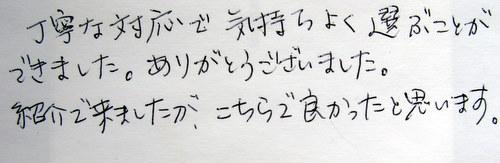 丁寧な対応で気持ちよく選ぶことが
できました。ありがとうございました。
紹介で来ましたが、こちらで良かったと思います。